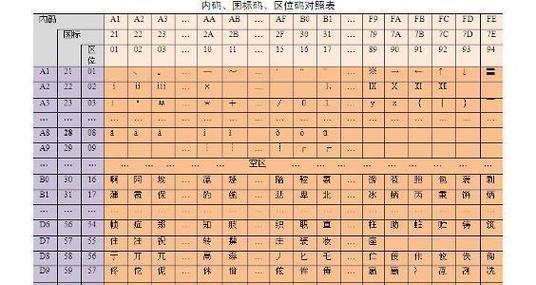 内码、国标码、区位码对照表
内码 A1 A2 A3 … AA AB … AF B0 B1 … F9 FA FB FC FD FE
国标 21 22 23 … 2A 2B … 2F 30 31 … 79 7A 7B 7C 7D 7E
区位 01 02 03 … 10 11 … 15 16 17 … 89 90 91 92 93 94
A1 21 01 、 。 … — ～ … … ※ → ← ↑ ↓ 〓
A2 22 02 ⅰ ⅱ ⅲ … ⅹ … 1. … Ⅸ Ⅹ Ⅺ Ⅻ
A3 23 03 ！ ＂ ＃ … ＊ ＋ … ／ ０ １ … ｙ ｚ ｛ ｜ ｝ ￣
… … … … … … … … … … … … … … … … … … … …
A8 28 08 ā á ǎ … ě è … ò ū … 
A9 29 09 … …
… … … … 空区 … … … … … … …
B0 30 16 啊 阿 埃 … 蔼 … 隘 鞍 氨 … 谤 苞 胞 包 褒 剥
B1 31 17 薄 雹 保 … 豹 鲍 … 悲 卑 北 … 冰 柄 丙 秉 饼 炳
… … … … … … … … … … … … … … … … … … … …
D6 56 54 帧 症 郑 … 知 肢 … 织 职 直 … 柱 助 蛀 贮 铸 筑
D7 57 55 住 注 祝 … 转 … 庄 装 妆 … 座
D8 58 56 亍 丌 兀 … 鬲 … 丿 匕 乇 …
D9 59 57 佟 佗 伲 …